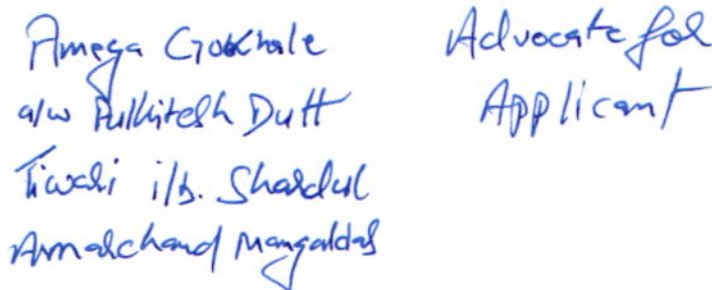 Ameya Gokhale
a/w Pulkitesh Dutt
Tiwari i/b. Shardul
Amarchand Mangaldas
Advocate for
Applicant